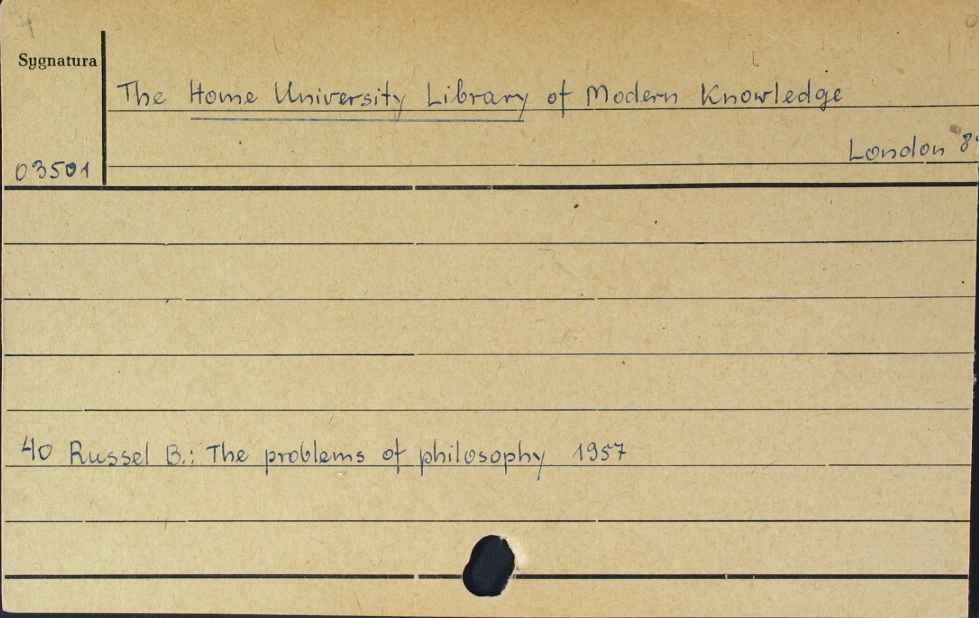 Sygnatura
The Home University Library of Modern Knowledge
London 8°
03501
40 Russel B.: The problems of philosophy 1957